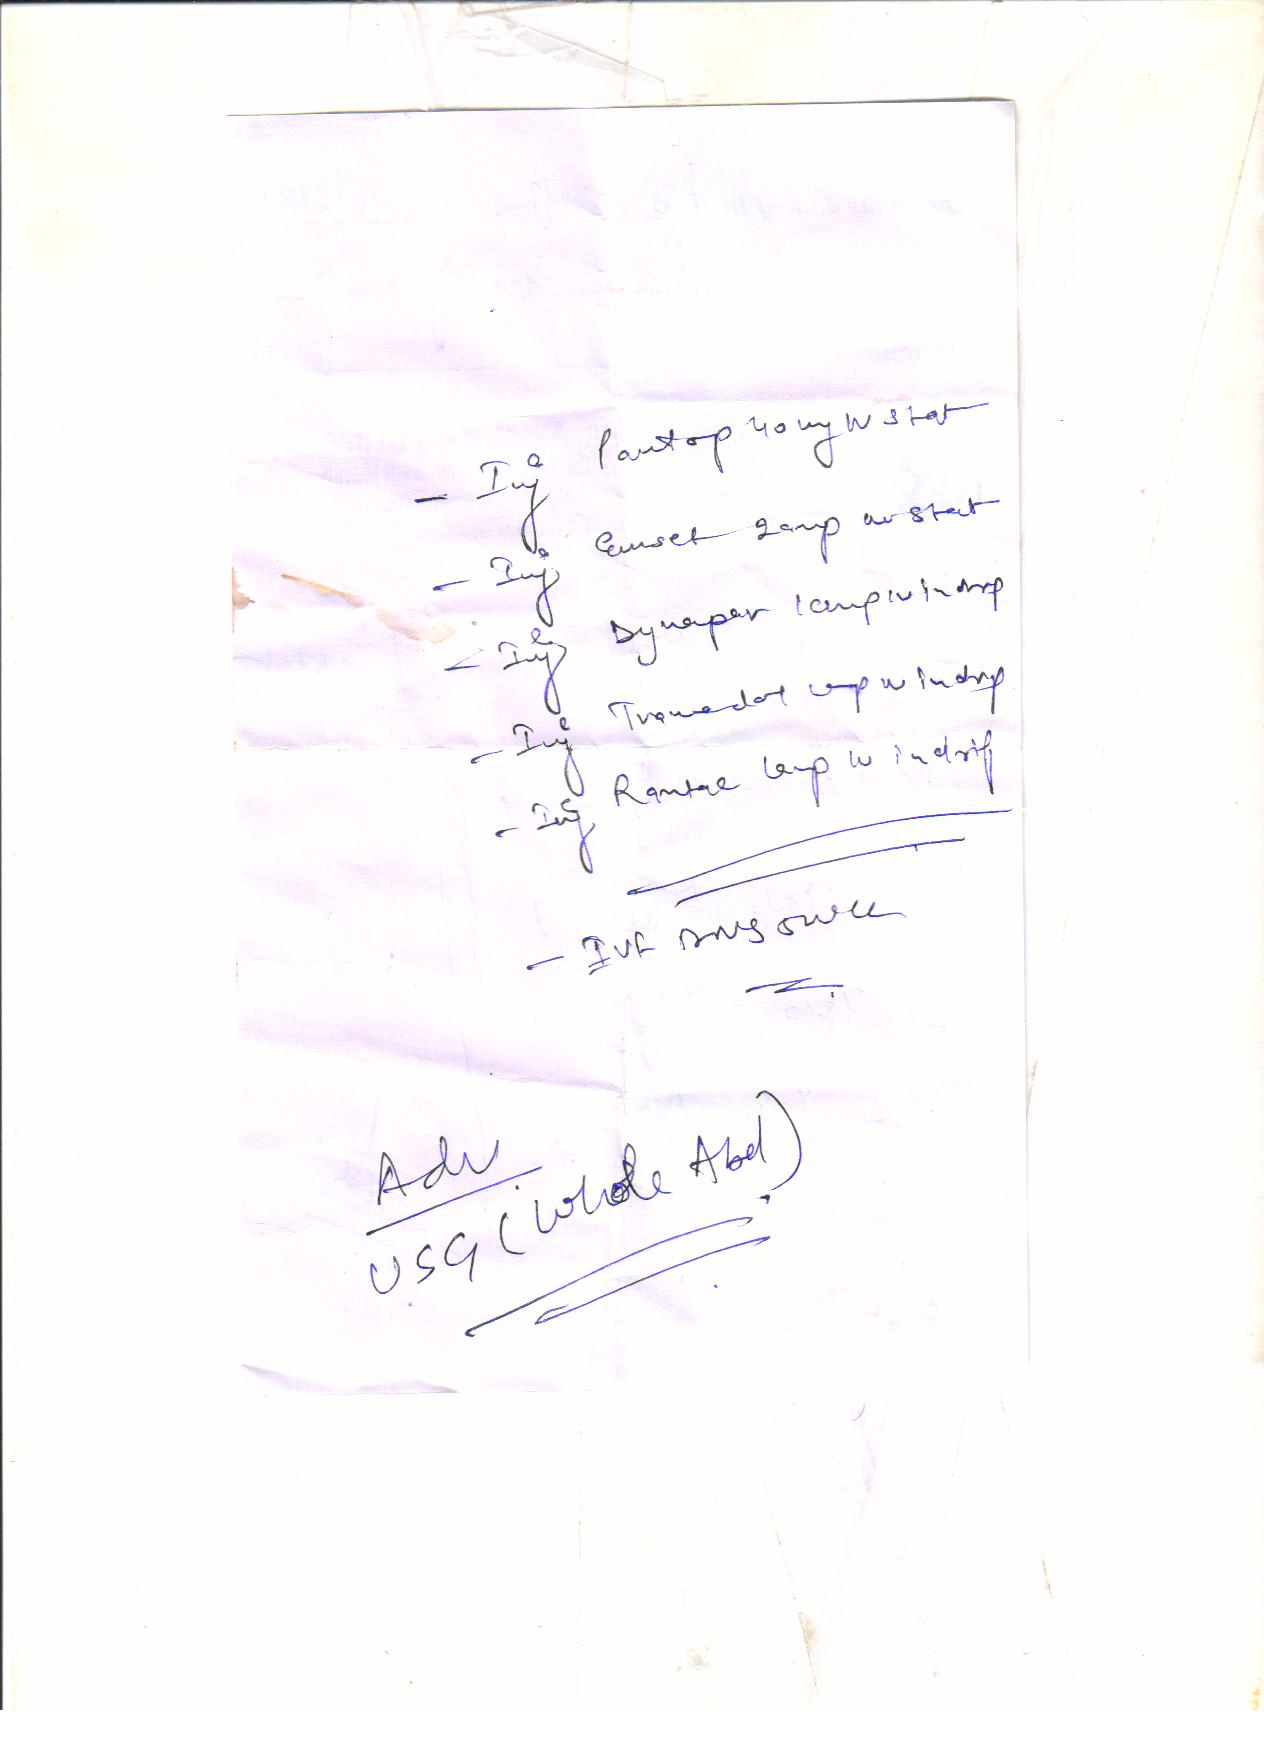 - Inj Pantop 40 mg IV stat
- Inj Emset 2 amp IV stat
- Inj Dynapar 1 amp IV in drip
- Inj Tramadol 1 amp IV in drip
- Inj Rantac 1 amp IV in drip
- IVF DNS 500 ml
Adv
USG (Whole Abd)